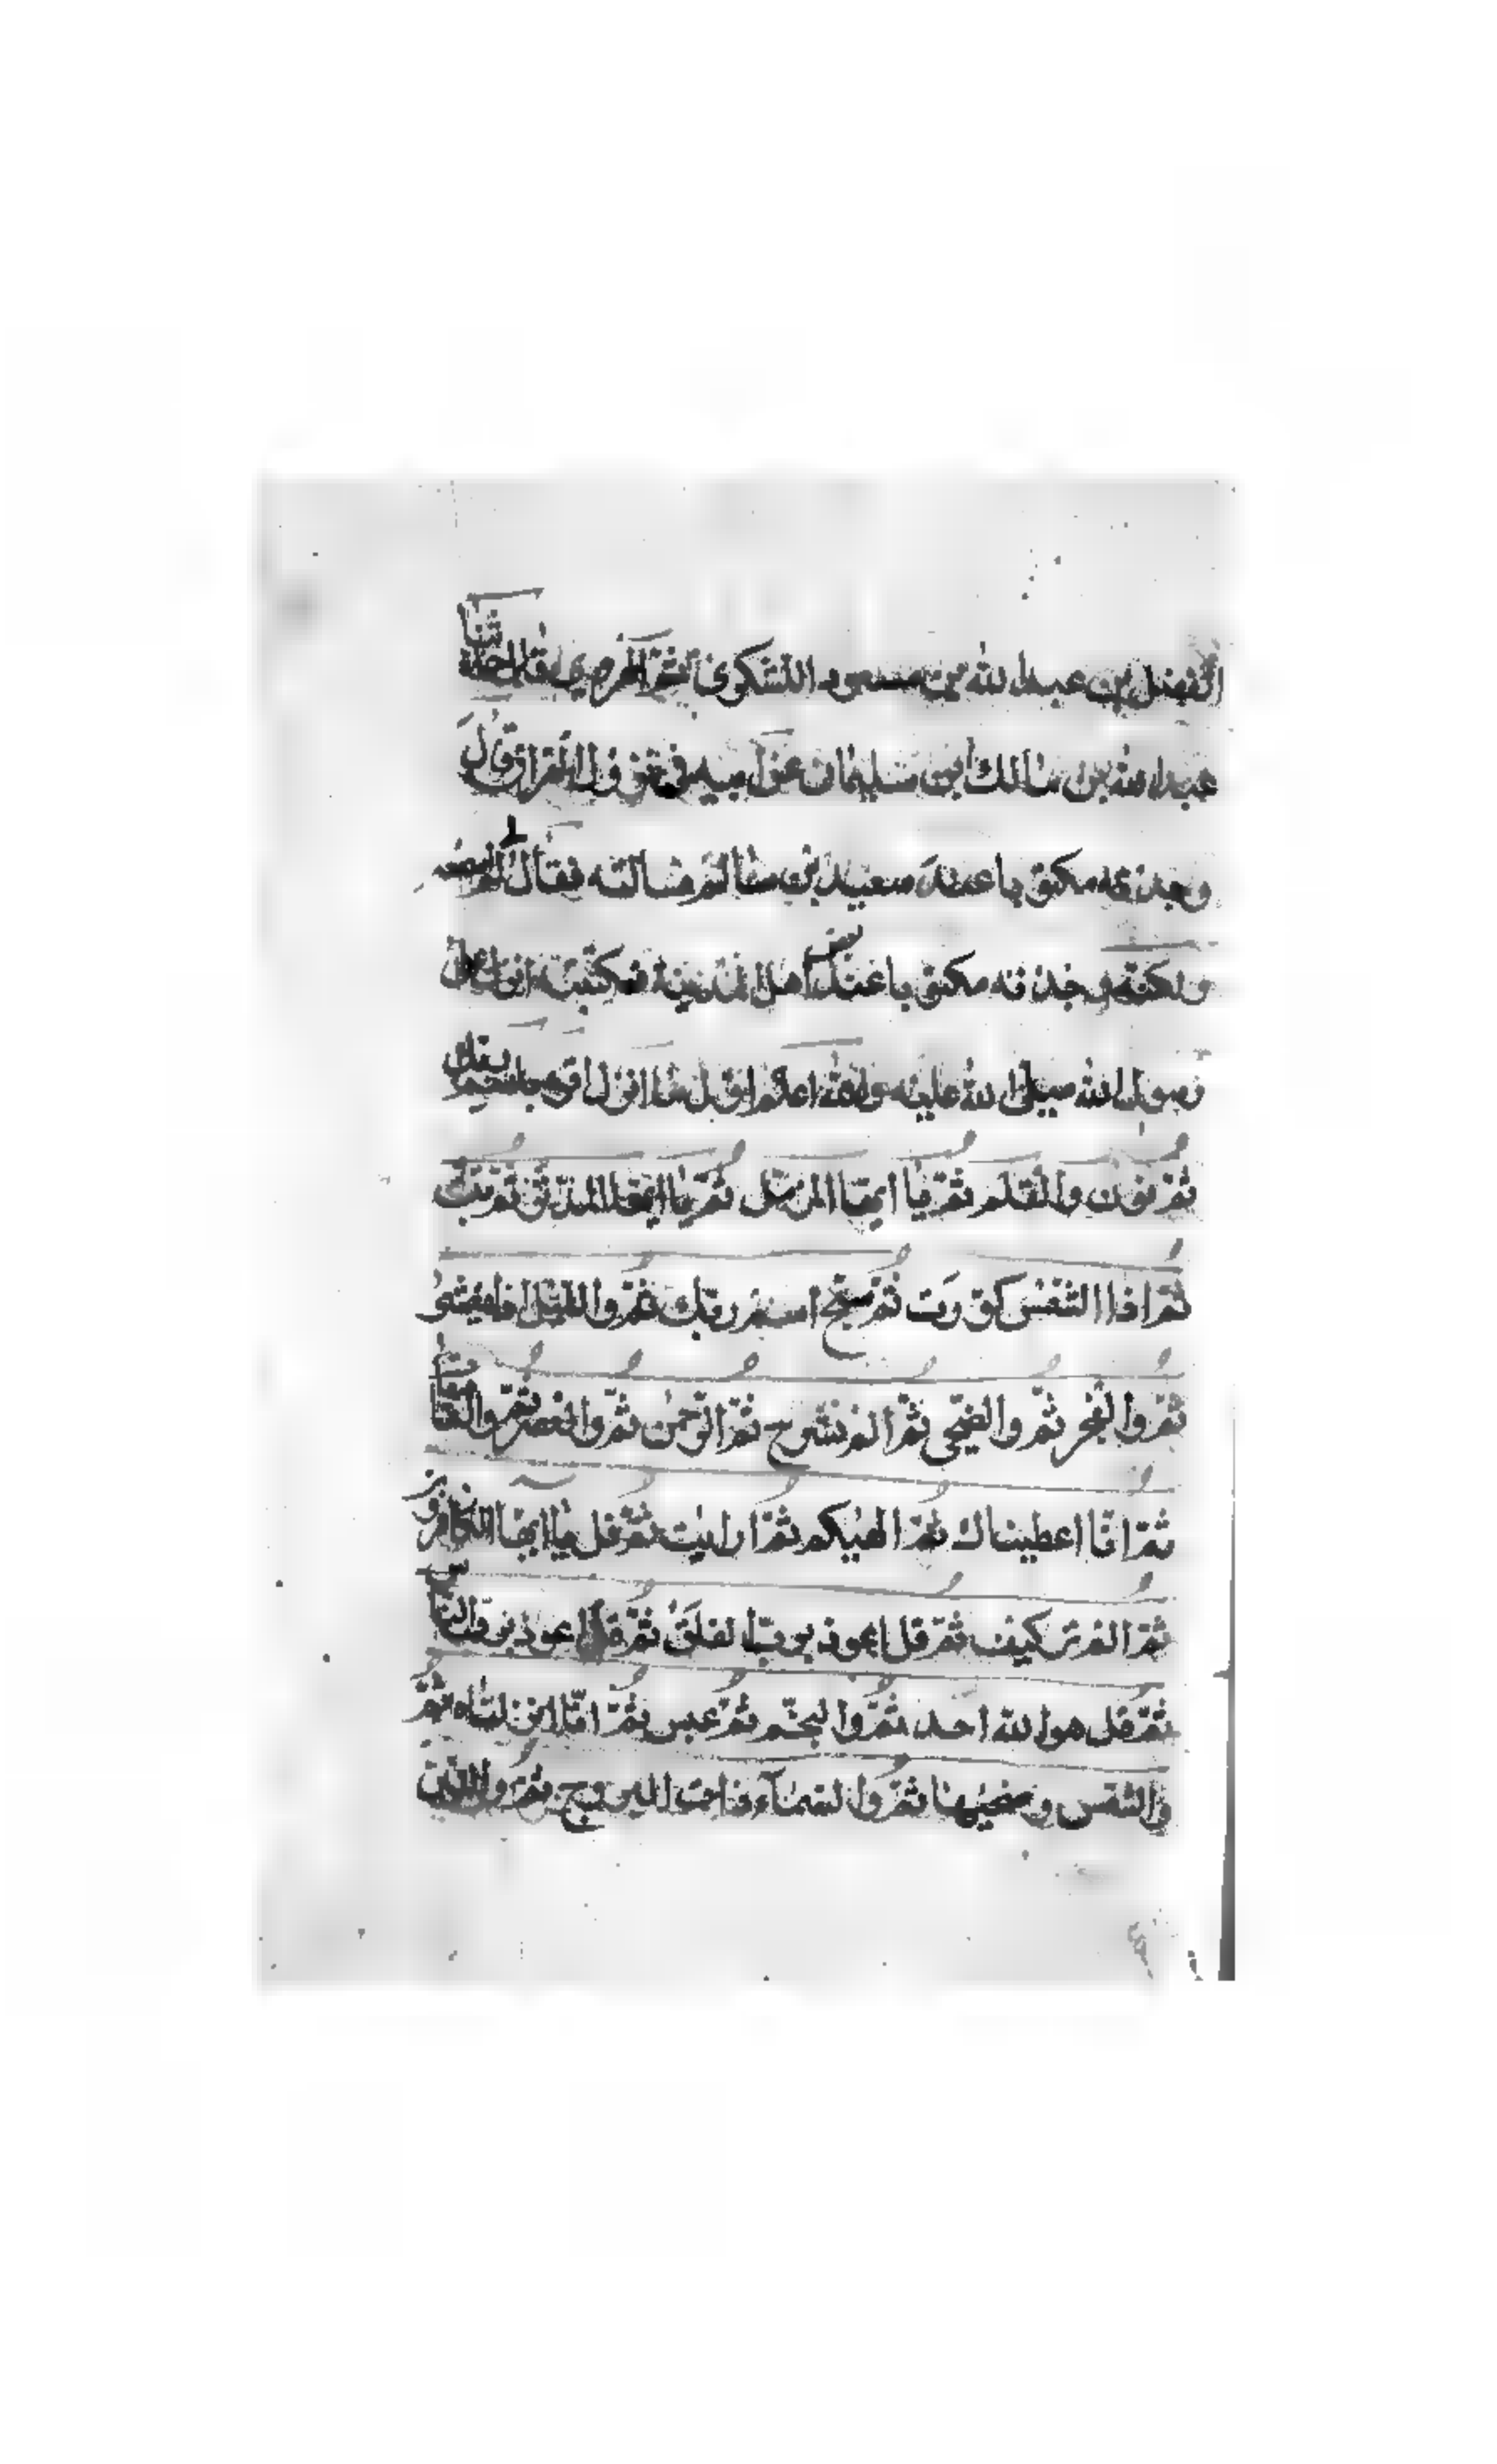 الفضل بن عبدالله بن مسعود اليشكري ثم الهرمزي قال حدثنا
عبدالله بن مالك ابن سليمان عن ابيه في نزول القرآن قال
وجدته مكتوبا عند سعيد بن سالم فسالته فقال لم اسمعه
ولكنه وجدته مكتوبا عند بعض اهل المدينة فكتبته
رسول الله صلى الله عليه والله اعلم اول ما انزل اقرء باسم ربك
ثم نون والقلم ثم يا ايها المزمل ثم يا ايها المدثر ثم تبت
ثم اذا الشمس كورت ثم سبح اسم ربك ثم والليل اذا يغشى
ثم والفجر ثم والضحى ثم الم نشرح ثم الرحمن ثم والعصر ثم والعاديات
ثم انا اعطيناك ثم الهيكم ثم ارايت ثم قل يا ايها الكافرون
ثم الم تر كيف ثم قل اعوذ برب الفلق ثم قل اعوذ برب الناس
ثم قل هو الله احد ثم والنجم ثم عبس ثم انا انزلناه ثم
والشمس وضحيها ثم والسماء ذات البروج ثم والتين